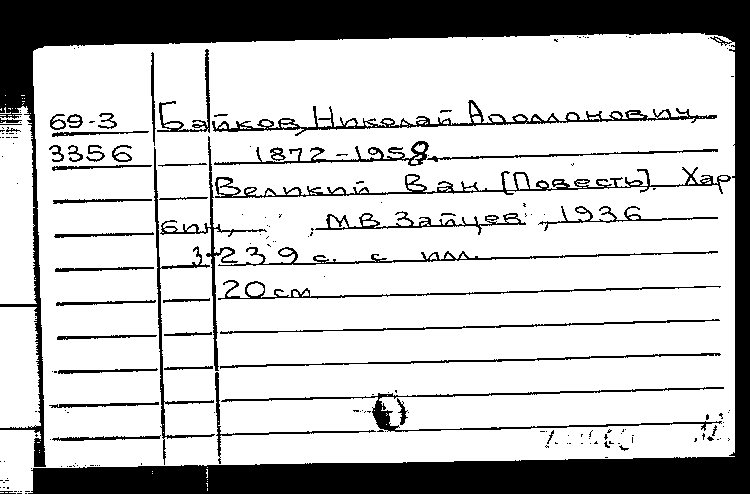 69-3 Байков, Николай Аполлонович,
3356 1872-1958.
Великий Ван. [Повесть]. Хар-
бин, М В Зайцев, 1936
3-239 с. с илл.
20 см